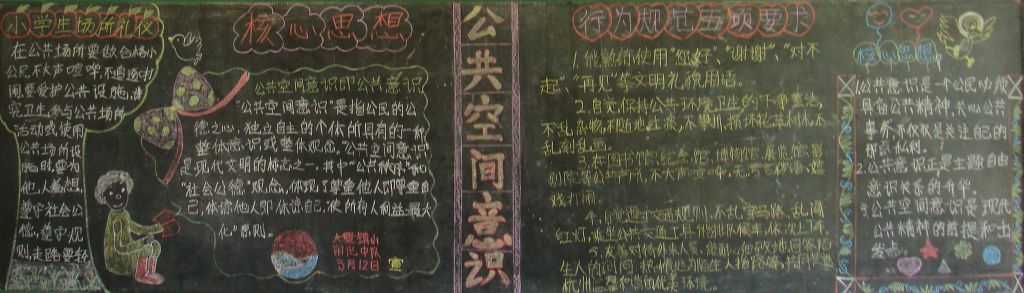 小学生场所礼仪
在公共场所要做合格小
公民,不大声喧哗,不追逐打
闹要爱护公共设施,讲
究卫生参与公共场所
活动或使用
公共场所设
施时要为
他人着想
遵守社会公
德,遵守规
则走路要轻
核心思想
公共空间意识即"公共意识
"公共空间意识"是指公民的公
德之心,独立自主的个体所具有的一种
整体意识或整体观念。"公共空间意识"
是现代文明的标志之一,其中"公共秩序"和
"社会公德"观念,体现了尊重他人即尊重自
己,体谅他人即体谅自己,使所有人利益最大
化"原则。
3月12日
宣
公共空间意识
行为规范五项要求
1.能熟练使用"您好"、"谢谢"、"对不
起"、"再见"等文明礼貌用语。
2.自觉保持公共环境卫生的干净整洁,
不乱丢物,不随地吐痰,不攀折
乱刻乱画。
3.在图书馆、纪念馆、博物馆
不大声喧哗,
戏打闹。
4.自觉遵守交通规则,不乱穿马路,乱闯
红灯,乘坐公共交通工具
5.友善对待外来人
生人的问询
杭州
核心思想
1.公共意识是一个公民必须
具备公共精神,关心公共
事务,不仅仅是关注自己的
2.公共意识正是主张自由
意识关系的升华。
3.公共空间意识是现代
公共精神的前提和出
发点。